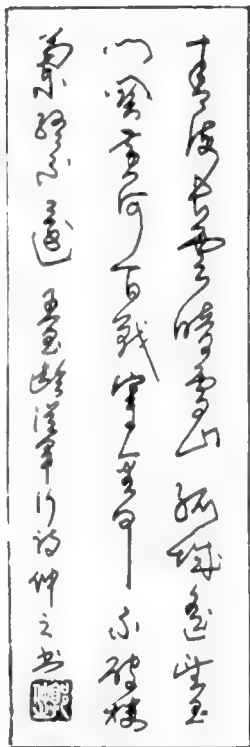 青海長雲暗雪山孤城遙望玉
門關黃河百戰穿金甲不破樓
蘭終不還 王昌齡從軍行詩仲之书